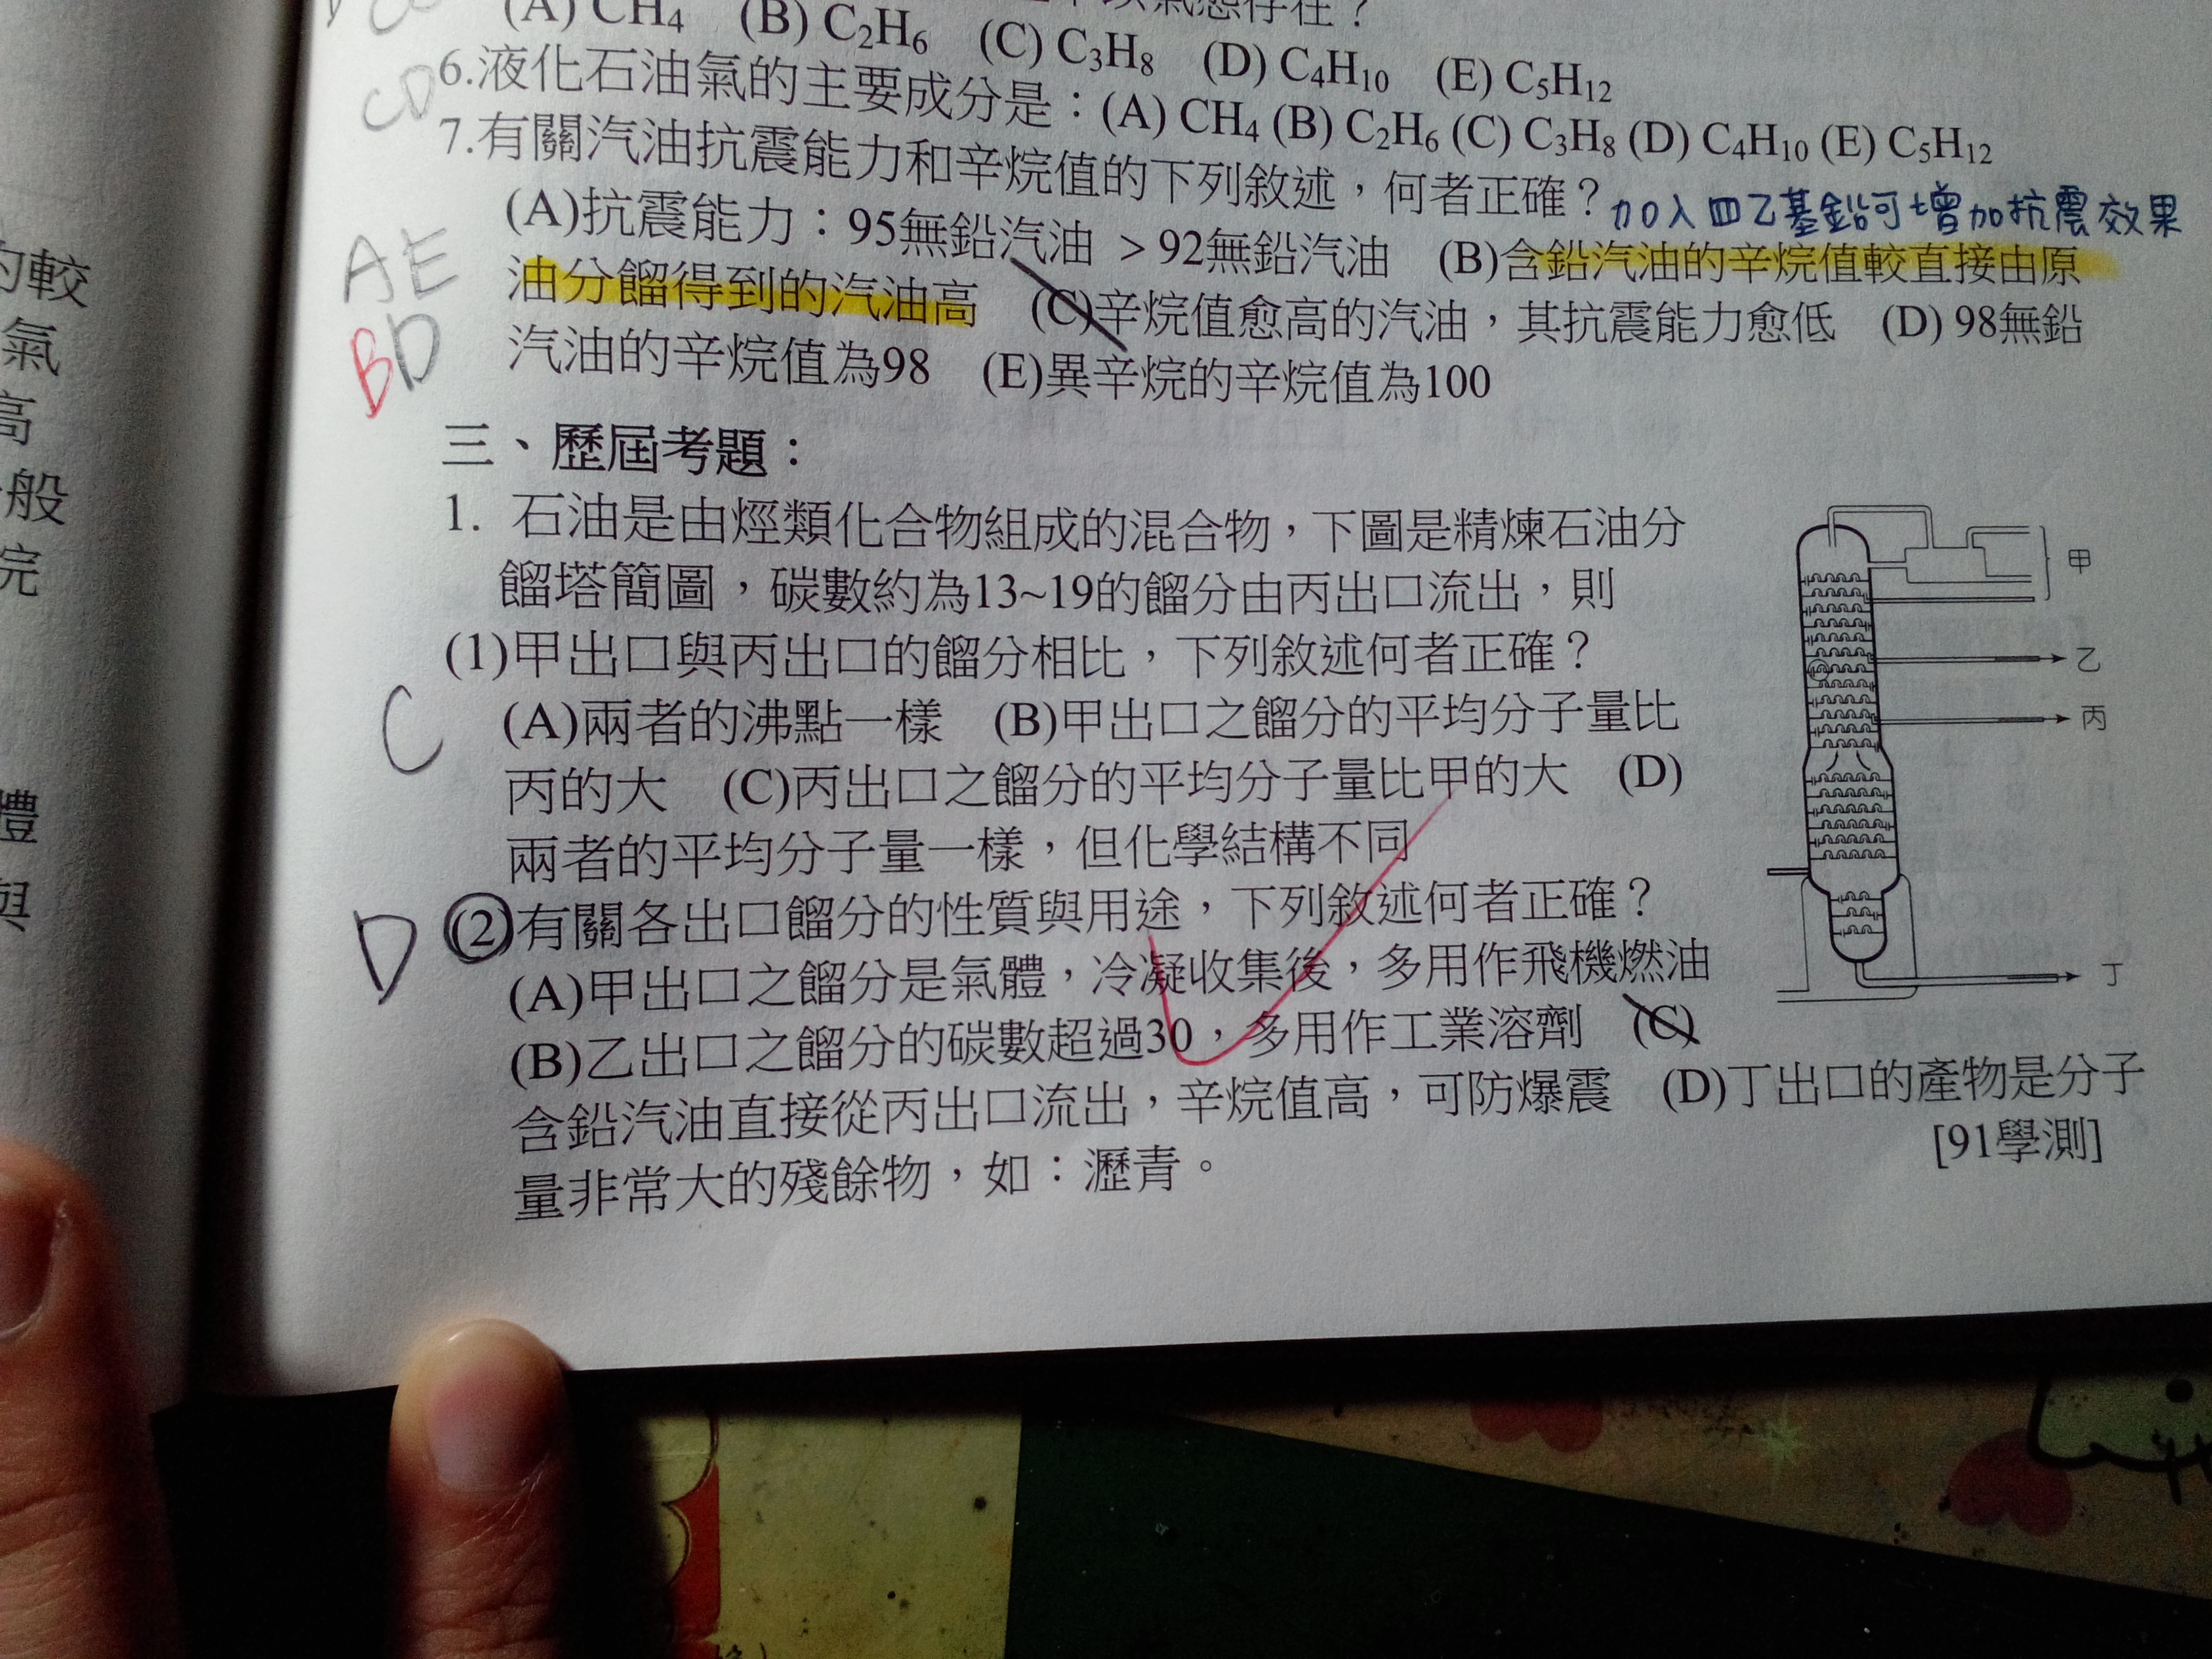 (A) CH4 (B) C2H6 (C) C3H8 (D) C4H10 (E) C5H12
CD
6.液化石油氣的主要成分是：(A) CH4 (B) C2H6 (C) C3H8 (D) C4H10 (E) C5H12
7.有關汽油抗震能力和辛烷值的下列敘述，何者正確？
加入四乙基鉛可增加抗震效果
AE
BD
(A)抗震能力：95無鉛汽油 > 92無鉛汽油 (B)含鉛汽油的辛烷值較直接由原
油分餾得到的汽油高 (C)辛烷值愈高的汽油，其抗震能力愈低 (D) 98無鉛
汽油的辛烷值為98 (E)異辛烷的辛烷值為100
三、歷屆考題：
1. 石油是由烴類化合物組成的混合物，下圖是精煉石油分
餾塔簡圖，碳數約為13~19的餾分由丙出口流出，則
C
(1)甲出口與丙出口的餾分相比，下列敘述何者正確？
(A)兩者的沸點一樣 (B)甲出口之餾分的平均分子量比
丙的大 (C)丙出口之餾分的平均分子量比甲的大 (D)
兩者的平均分子量一樣，但化學結構不同
D
(2)有關各出口餾分的性質與用途，下列敘述何者正確？
(A)甲出口之餾分是氣體，冷凝收集後，多用作飛機燃油
(B)乙出口之餾分的碳數超過30，多用作工業溶劑 (C)
含鉛汽油直接從丙出口流出，辛烷值高，可防爆震 (D)丁出口的產物是分子
量非常大的殘餘物，如：瀝青。
[91學測]
甲
乙
丙
丁
的較
氣
高
般
體
與